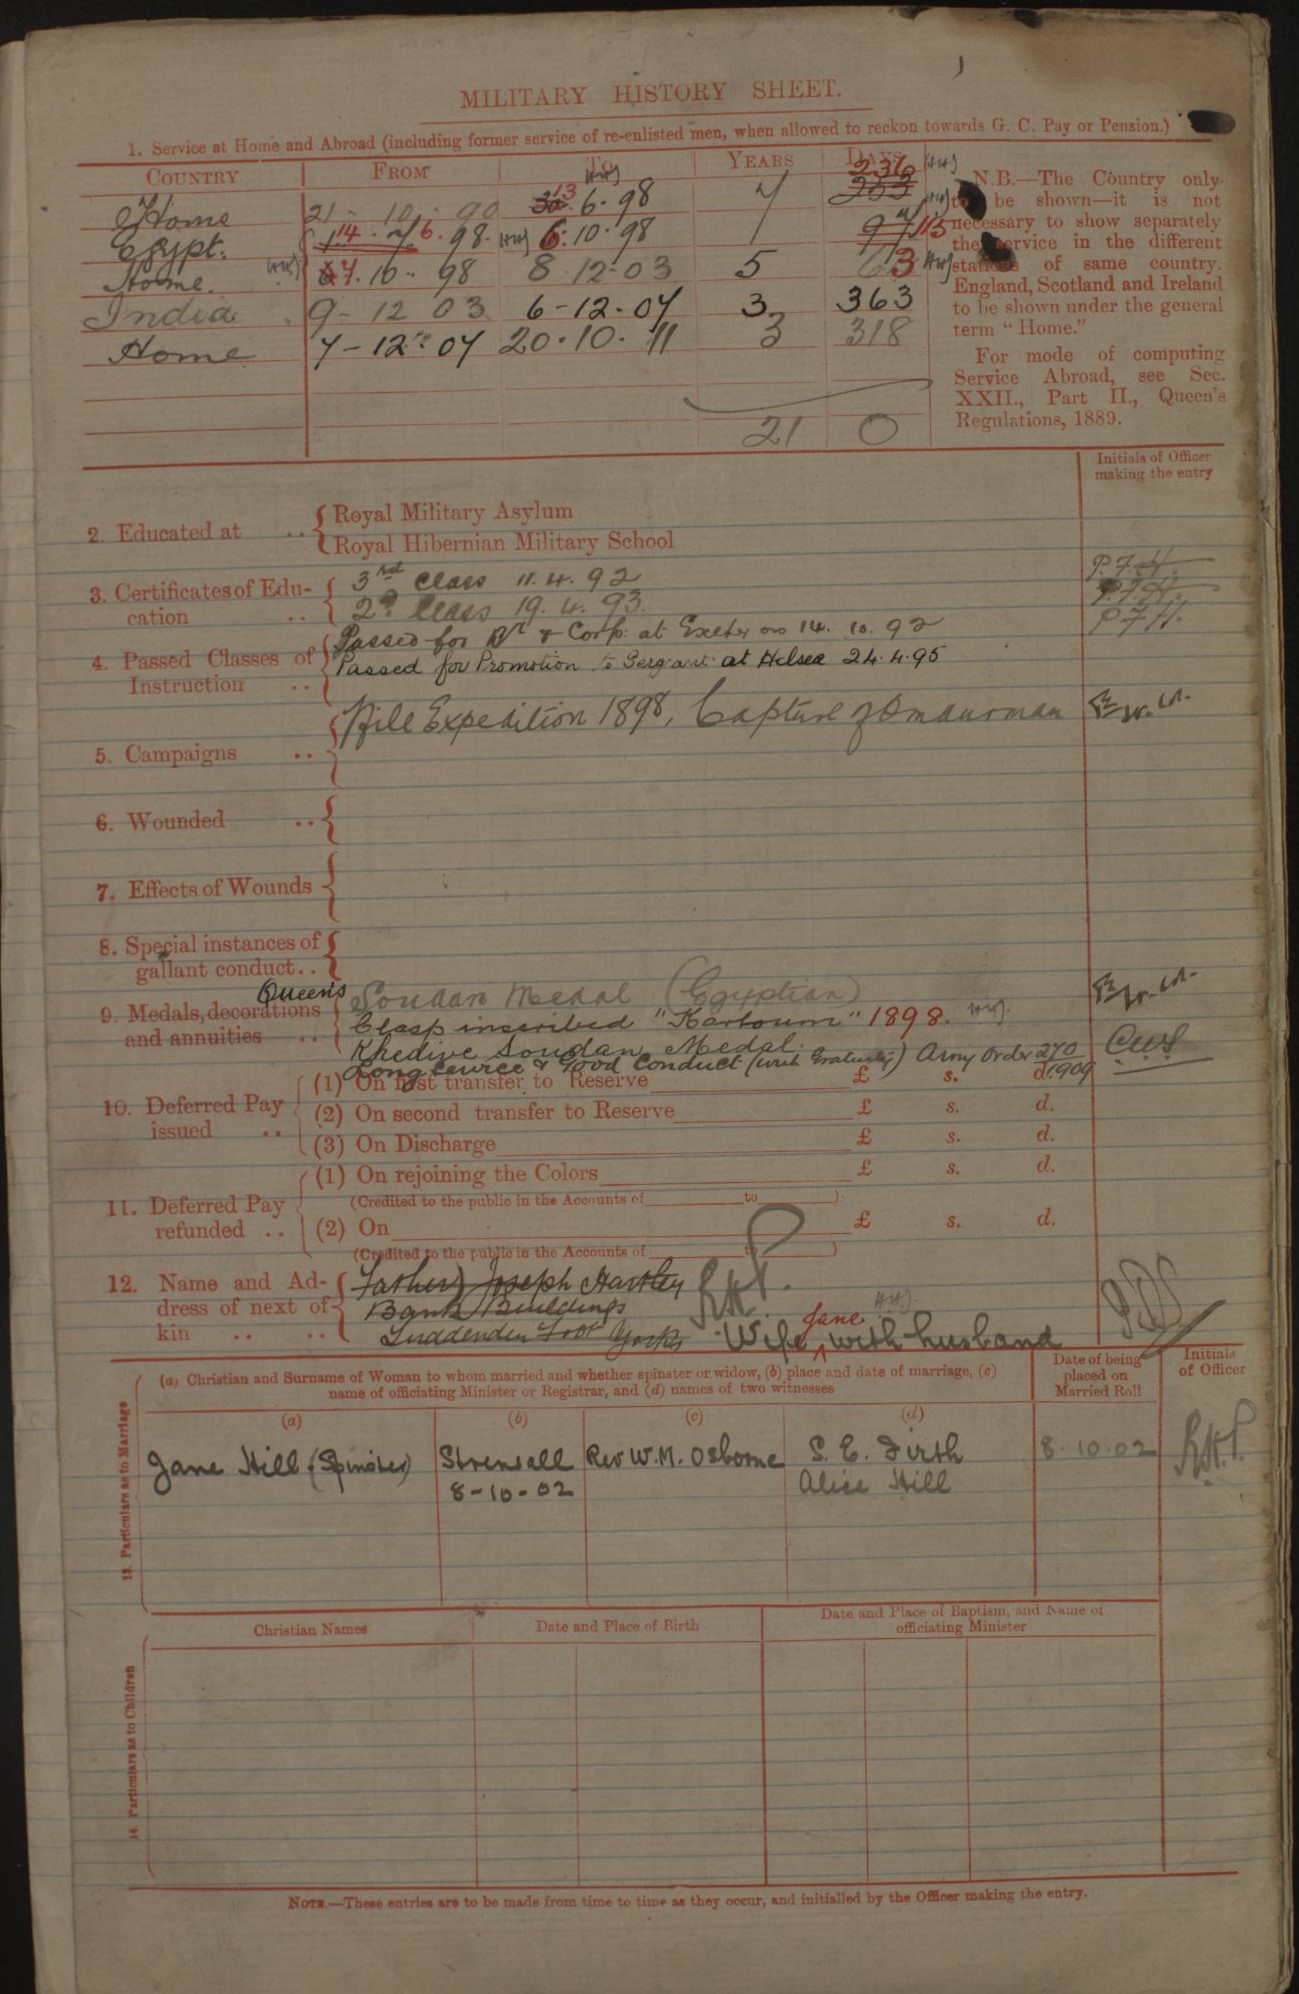 MILITARY HISTORY SHEET.
1. Service at Home and Abroad (including former service of re-enlisted men, when allowed to reckon towards G. C. Pay or Pension.)
COUNTRY FROM TO YEARS DAYS
Home 21 - 10 - 90 13 . 6 . 98 7 236
Egypt. 14 . 6 . 98 . 6 . 10 . 98 / 115
Home. 7 . 10 . 98 8 . 12 . 03 5 63
India 9 - 12 03 6 - 12 . 07 3 363
Home 7 - 12 - 07 20 . 10 . 11 3 318
21 0
N.B.—The Country only
to be shown—it is not
necessary to show separately
the service in the different
stations of same country.
England, Scotland and Ireland
to be shown under the general
term "Home."
For mode of computing
Service Abroad, see Sec.
XXII., Part II., Queen's
Regulations, 1889.
Initials of Officer
making the entry
2. Educated at .. Royal Military Asylum
Royal Hibernian Military School
3. Certificates of Edu-
cation ..
3rd Class 11. 4. 92 P.F.H.
2d. Class 19. 4. 93. P.F.H.
4. Passed Classes of
Instruction ..
Passed for Br & Corp: at Exeter on 14. 10. 92 P.F.H.
Passed for Promotion to Sergant: at Hilsea 24.4.95
5. Campaigns ..
Nile Expedition 1898, Capture of Omdurman
6. Wounded ..
7. Effects of Wounds
8. Special instances of
gallant conduct..
9. Medals, decorations
and annuities ..
Queen's Soudan Medal (Egyptian)
Clasp inscribed "Kartoum" 1898.
Khedive Soudan Medal.
Long Service & Good Conduct (with Gratuity) Army Order 270/1909
10. Deferred Pay
issued ..
(1) On first transfer to Reserve £ s. d.
(2) On second transfer to Reserve £ s. d.
(3) On Discharge £ s. d.
11. Deferred Pay
refunded ..
(1) On rejoining the Colors £ s. d.
(Credited to the public in the Accounts of to ).
(2) On £ s. d.
(Credited to the public in the Accounts of to )
12. Name and Ad-
dress of next of
kin .. ..
Father) Joseph Hartley
Bank Buildings
Luddenden Foot Yorks
Wife Jane with husband
13. Particulars as to Marriage
(a) Christian and Surname of Woman to whom married and whether spinster or widow, (b) place and date of marriage, (c)
name of officiating Minister or Registrar, and (d) names of two witnesses
Date of being
placed on
Married Roll
Initials
of Officer
(a) (b) (c) (d)
Jane Hill (Spinster) Strensall Rev W. M. Osborne S. E. Firth 8 . 10 . 02
8 - 10 - 02 Alice Hill
14. Particulars as to Children
Christian Names Date and Place of Birth Date and Place of Baptism, and Name of
officiating Minister
NOTE.—These entries are to be made from time to time as they occur, and initialled by the Officer making the entry.